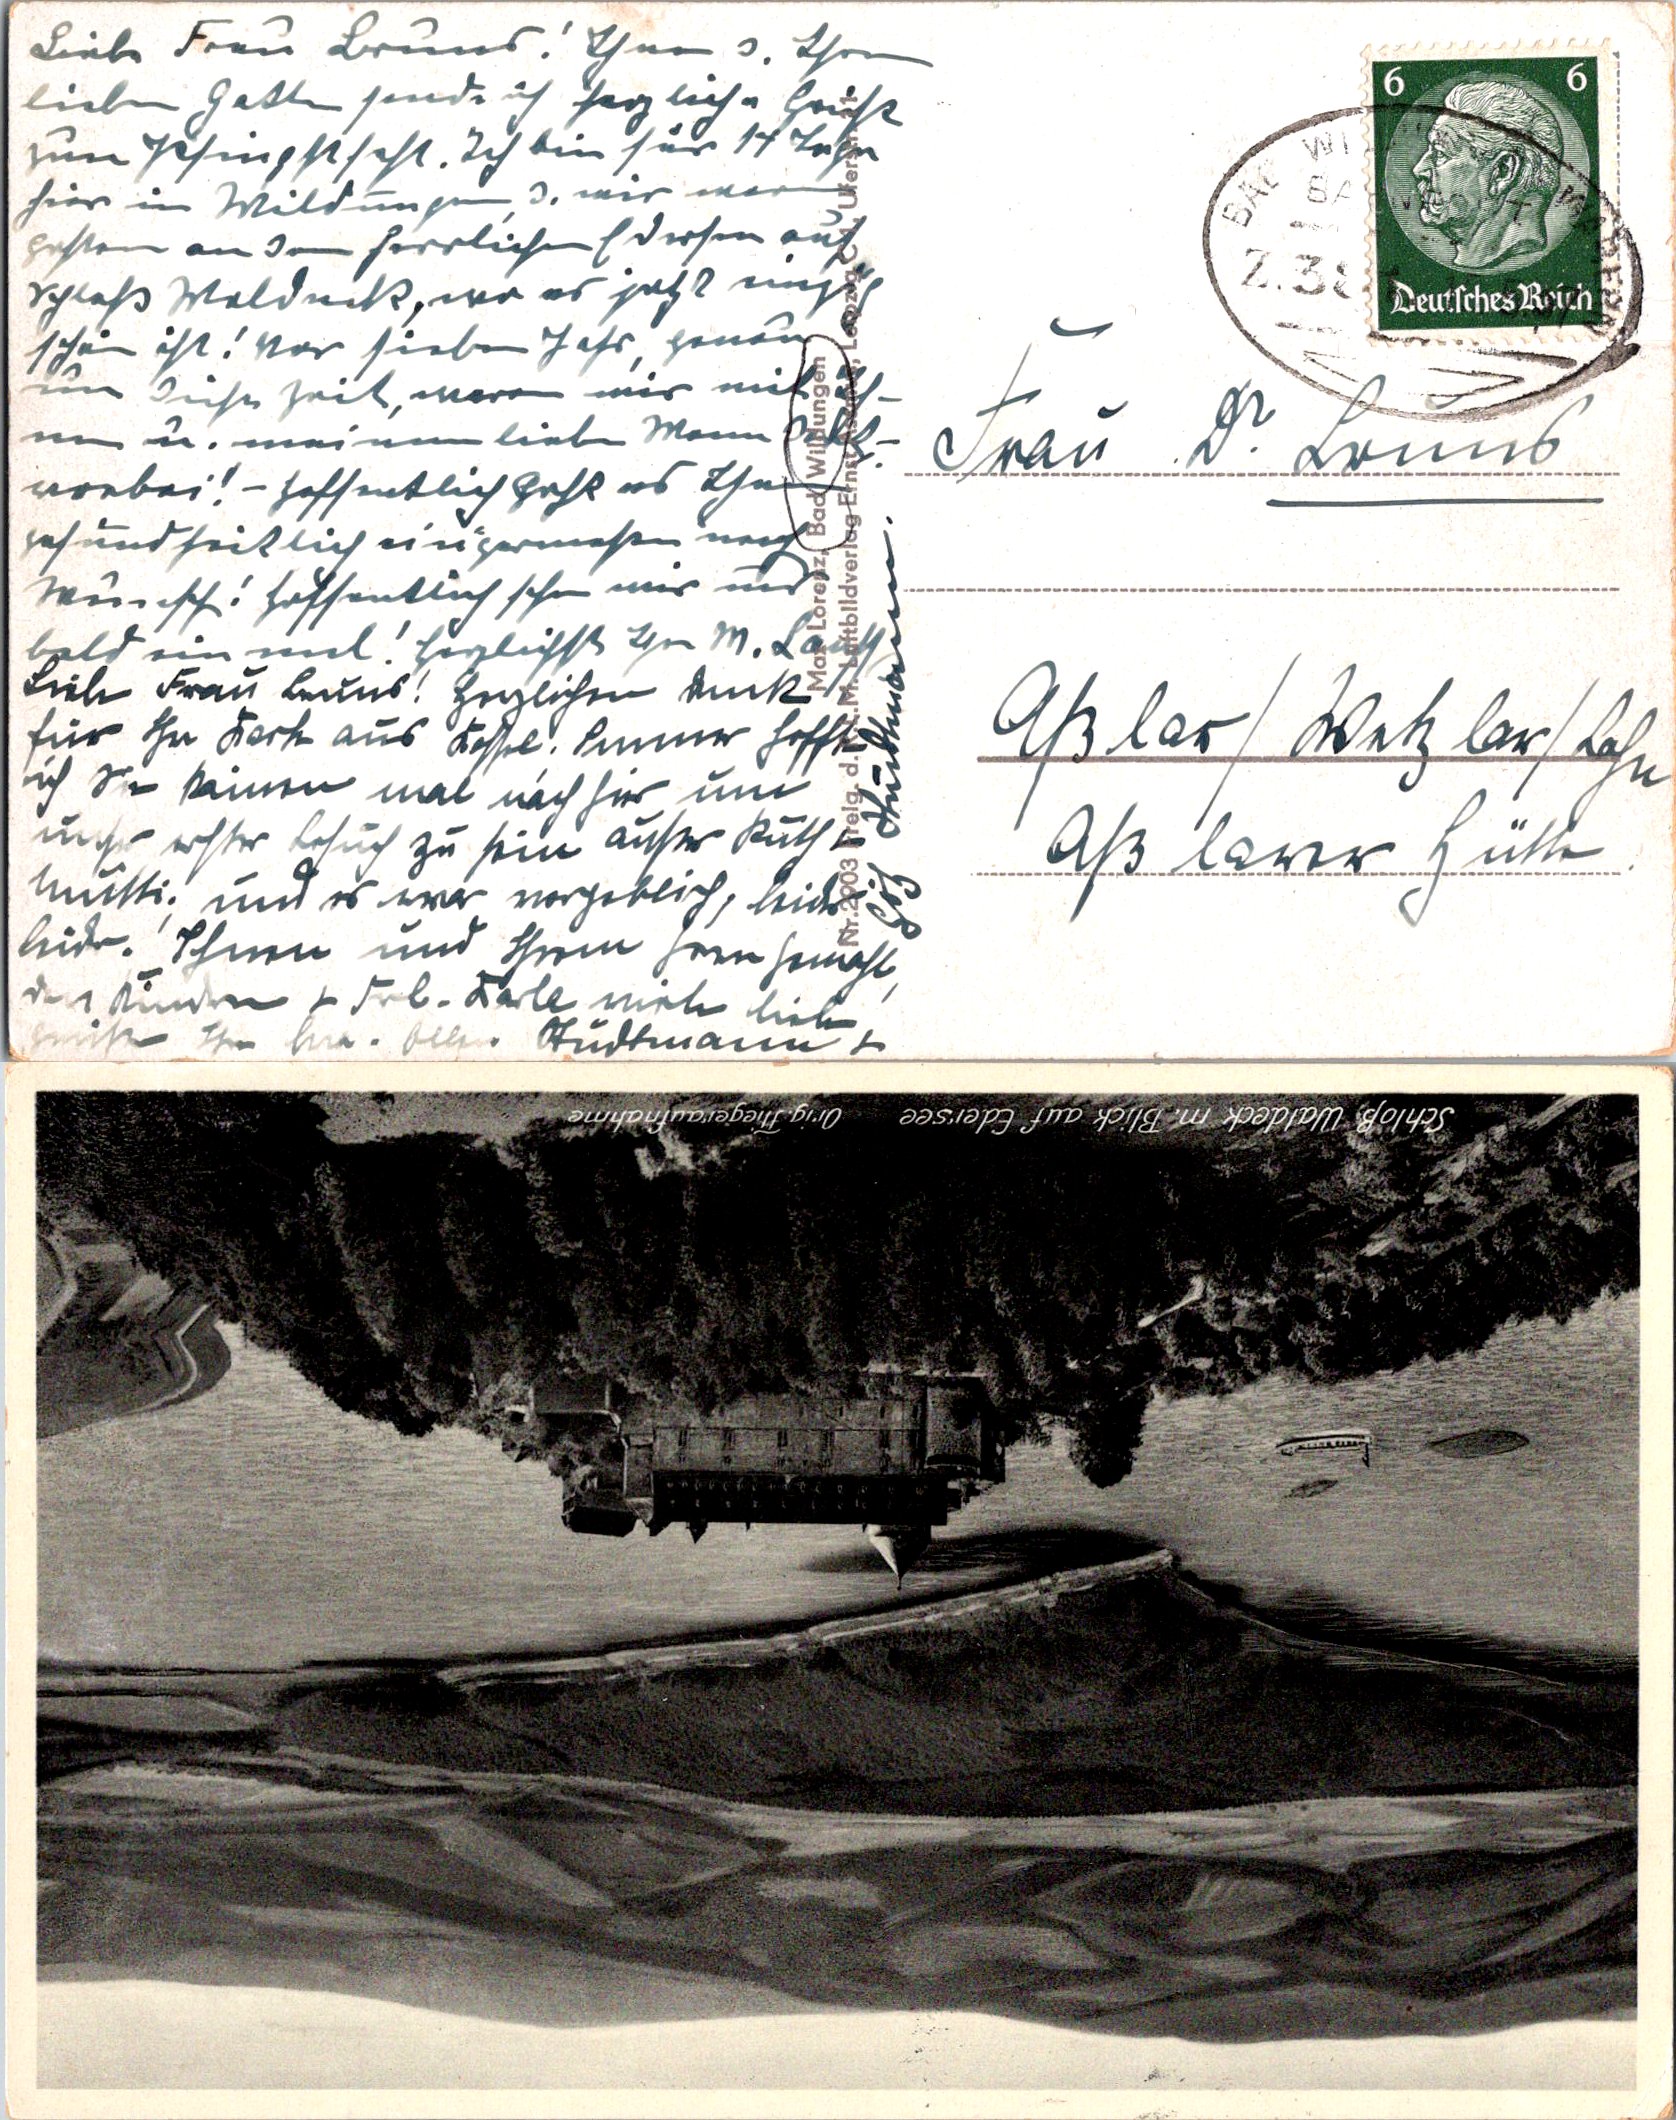 Liebe Frau Bruns! Ihnen u. Ihrem
lieben Gatten sende ich herzliche Grüße
zum Pfingstfest. Ich bin für 14 Tage
hier in Wildungen, u. wir waren
gestern an dem herrlichen Edersee auf
Schloß Waldeck, wo es jetzt einzig
schön ist! Vor sieben Jahr, genau
um diese Zeit, waren wir mit Ih-
nen u. meinem lieben Mann
! – Hoffentlich geht es Ihnen
gesundheitlich einigermaßen nach
Wunsch! Hoffentlich sehen wir uns
bald einmal! Herzlichst Ihre M.
Liebe Frau Bruns! Herzlichen Dank
für Ihre Karte aus Kassel. Immer hoffte
ich Sie kämen mal nach hier um
unser erster Besuch zu sein außer Ruth +
Mutti. und es war vergeblich, leider
leider! Ihnen und Ihrem Herrn Gemahl,
den Kindern + Frl. Karle viele liebe
Grüße Ihre Studtmann +
Götz Studtmann.
Max Lorenz, Bad Wildungen
Nr. 2003 Freig. d. R.L.M. Luftbildverlag Ernst
6 6
Deutsches Reich
BAD WI
Z.38
Frau Dr. Bruns
Aßlar / Wetzlar / Lahn
Aßlarer Hütte.
Schloß Waldeck m. Blick auf Edersee
Orig. Fliegeraufnahme